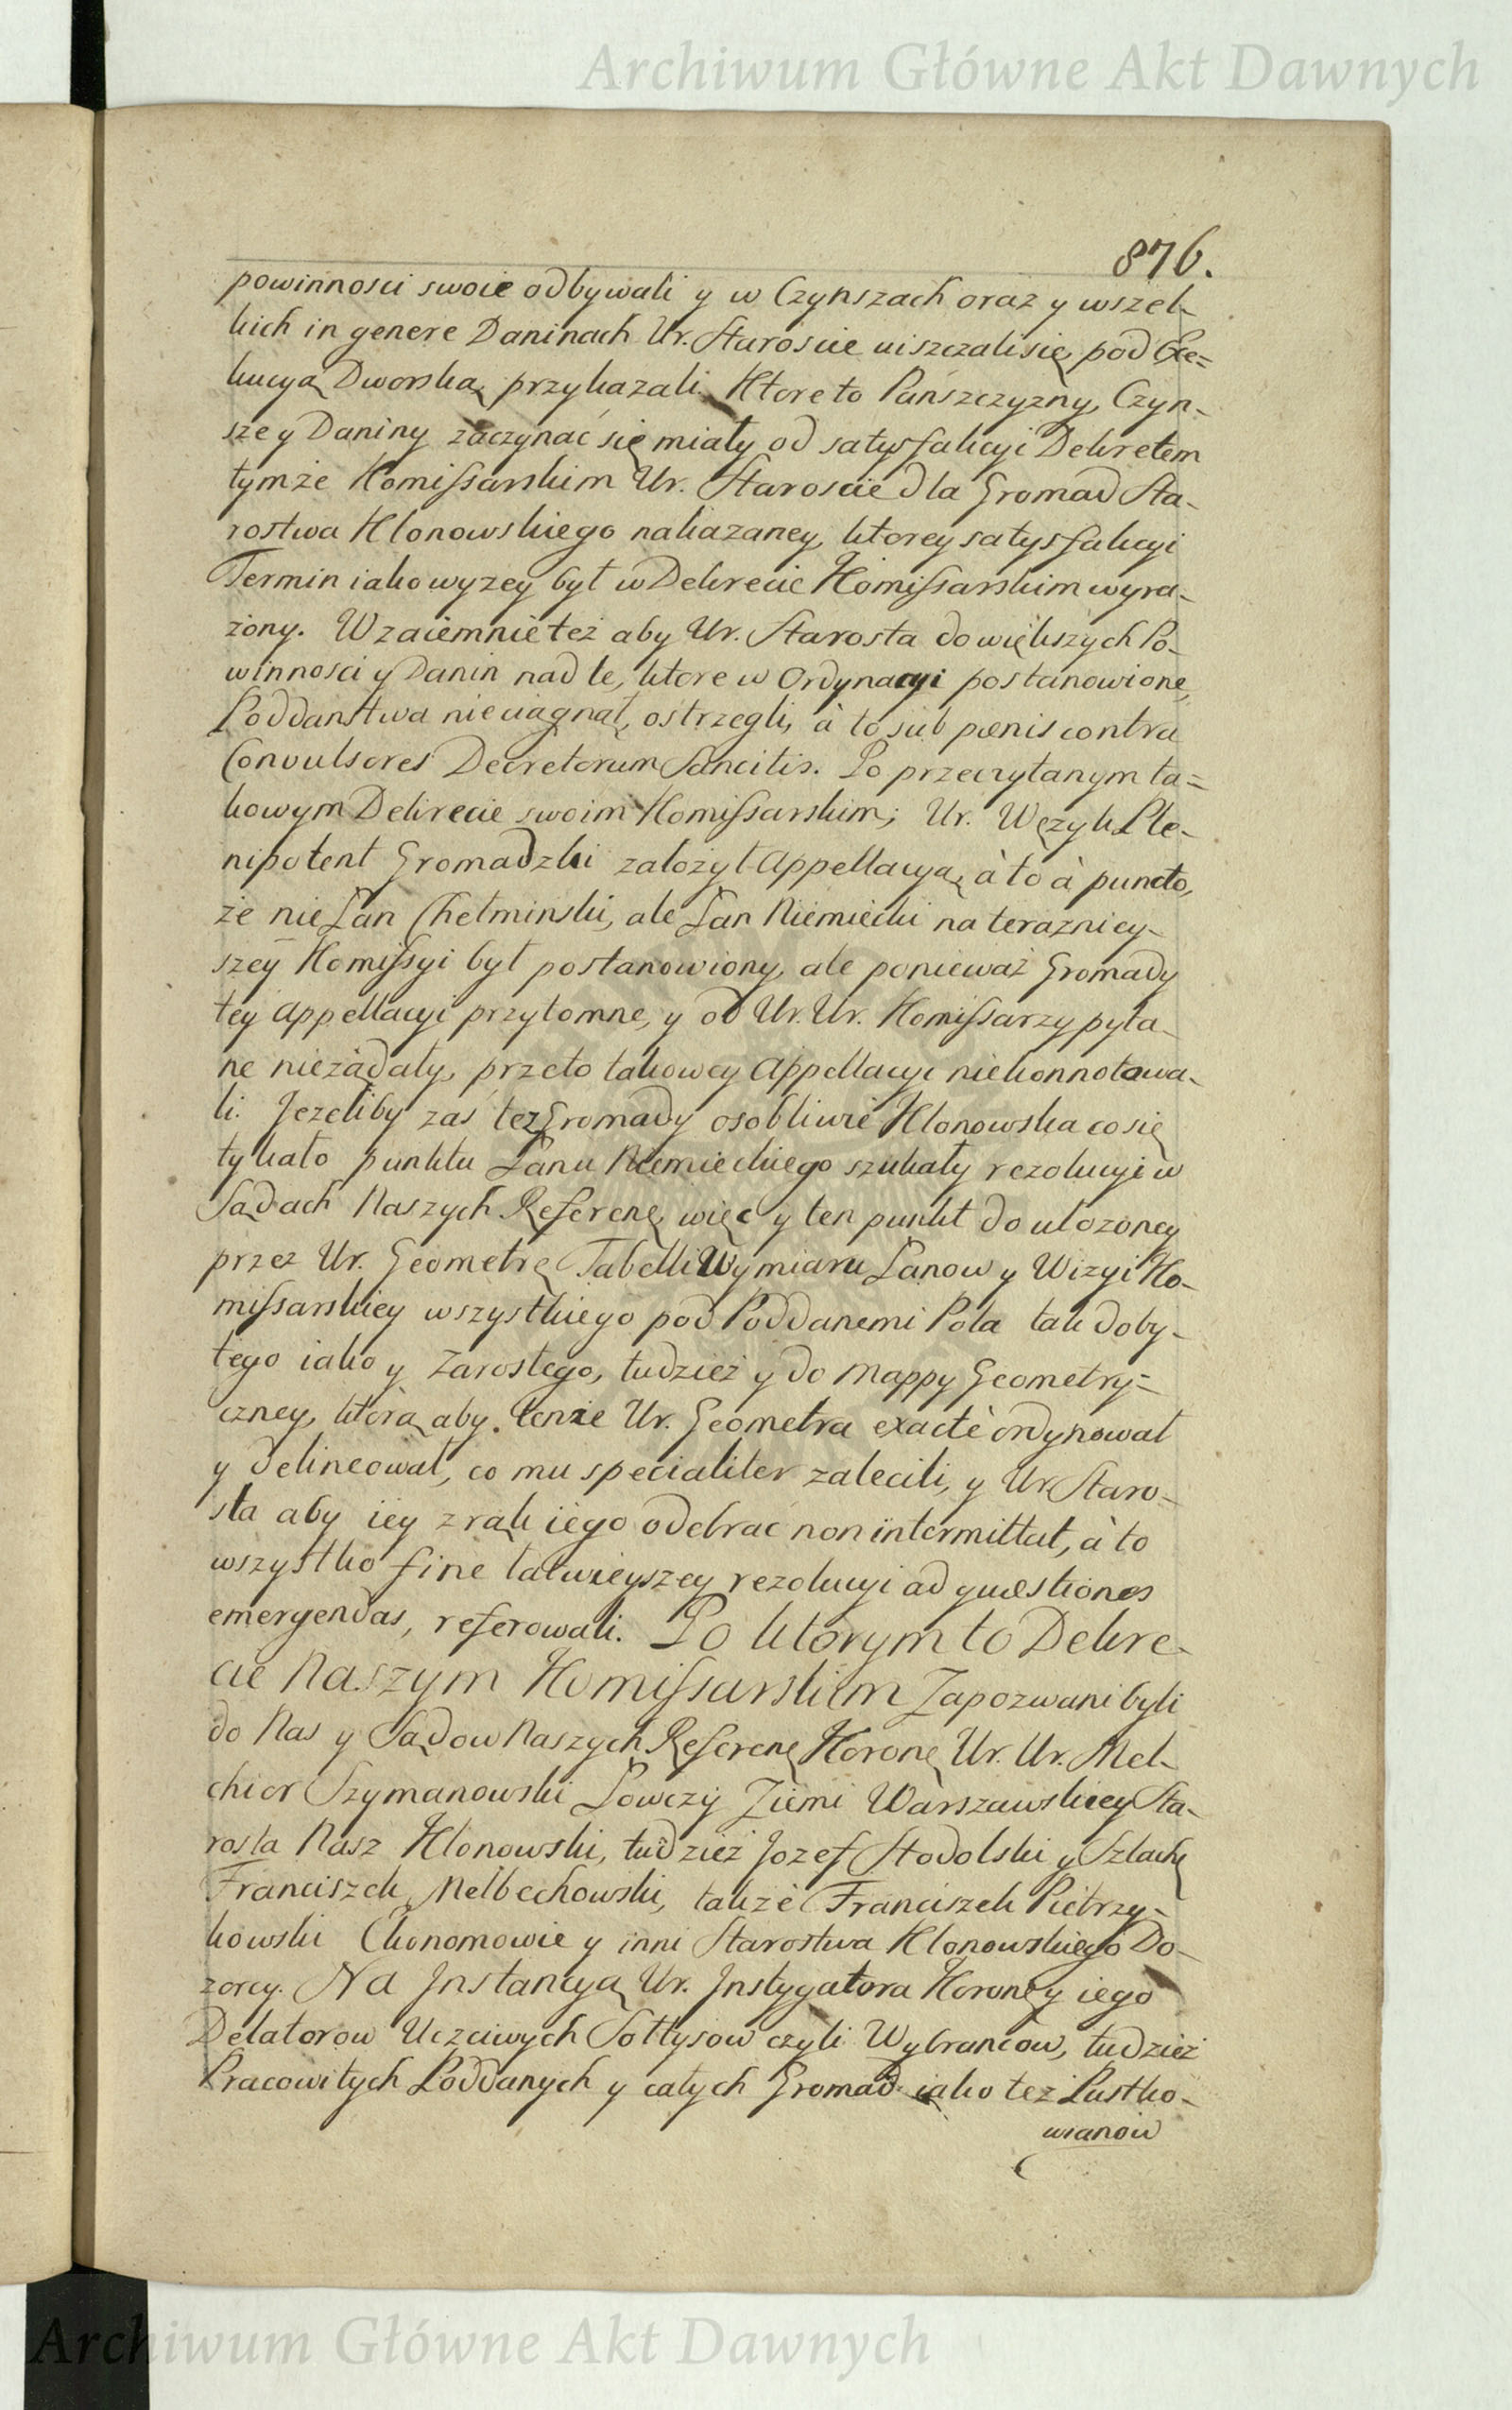 Archiwum Główne Akt Dawnych
876.
powinnosci swoie odbywali y w Czynszach oraz y wszel-
kich in genere Daninach Ur. Staroscie uiszczali się, pod Exe=
kucyą Dworską przykazali. Ktore to Pańszczyzny, Czyn-
sze y Daniny zaczynać się miały od satysfakcyi Dekretem
tymże Komissarskim Ur. Staroscie dla Gromad Sta-
rostwa Klonowskiego nakazaney, ktorey satysfakcyi
Termin iako wyzey był w Dekrecie Komissarskim wyra-
żony. Wzaiemnie też aby Ur. Starosta do większych Po-
winnosci y Danin nad te, ktore w Ordynacyi postanowione,
Poddanstwa nieciągnął, ostrzegli, à to sub pœnis contra
Convulsores Decretorum Sancitis. Po przeczytanym ta=
kowym Dekrecie swoim Komissarskim; Ur. Węzyk Ple-
nipotent Gromadzki założył Appellacyą, à to à puncto,
że nie Łan Chełminski, ale Łan Niemiecki na terazniey-
szey Komissyi był postanowiony, ale ponieważ Gromady
tey Appellacyi przytomne, y od Ur. Ur. Komissarzy pyta-
ne nieżądały, przeto takowey Appellacyi niekonnotowa-
li. Jezeliby zaś też Gromady osobliwie Klonowska co się
tykało punktu Łanu Niemieckiego szukały rezolucyi w
Sądach Naszych Referenc, więc y ten punkt do ułozoney
przez Ur. Geometrę Tabelli Wymiaru Łanow y Wizyi Ko-
missarskiey wszystkiego pod Poddanemi Pola tak doby-
tego iako y Zarosłego, tudzież y do Mappy Geometry=
czney, którą aby tenże Ur. Geometra exactè ordynował
y delineował, co mu specialiter zalecili, y Ur Staro-
sta aby iey z rąk iego odebrać non intermittat, à to
wszystko fine łatwieyszey rezolucyi ad quæstiones
emergendas, referowali. Po ktorym to Dekre-
cie Naszym Komissarskim Zapozwani byli
do Nas y Sądow Naszych Referenc Koronę Ur. Ur. Mel-
chior Szymanowski Łowczy Ziemi Warszawskiey Sta-
rosta Nasz Klonowski, tudzież Jozef Stodolski y Szlach
Franciszek Melbechowski, także Franciszek Pietrzy-
kowski Ekonomowie y inni Starostwa Klonowskiego Do-
zorcy. Na Jnstancyą Ur. Jnstygatora Koronę y iego
Delatorow Uczciwych Sołtysow czyli Wybrańcow, tudzież
Pracowitych Poddanych y całych Gromad iako też Pustko-
wianow
Archiwum Główne Akt Dawnych